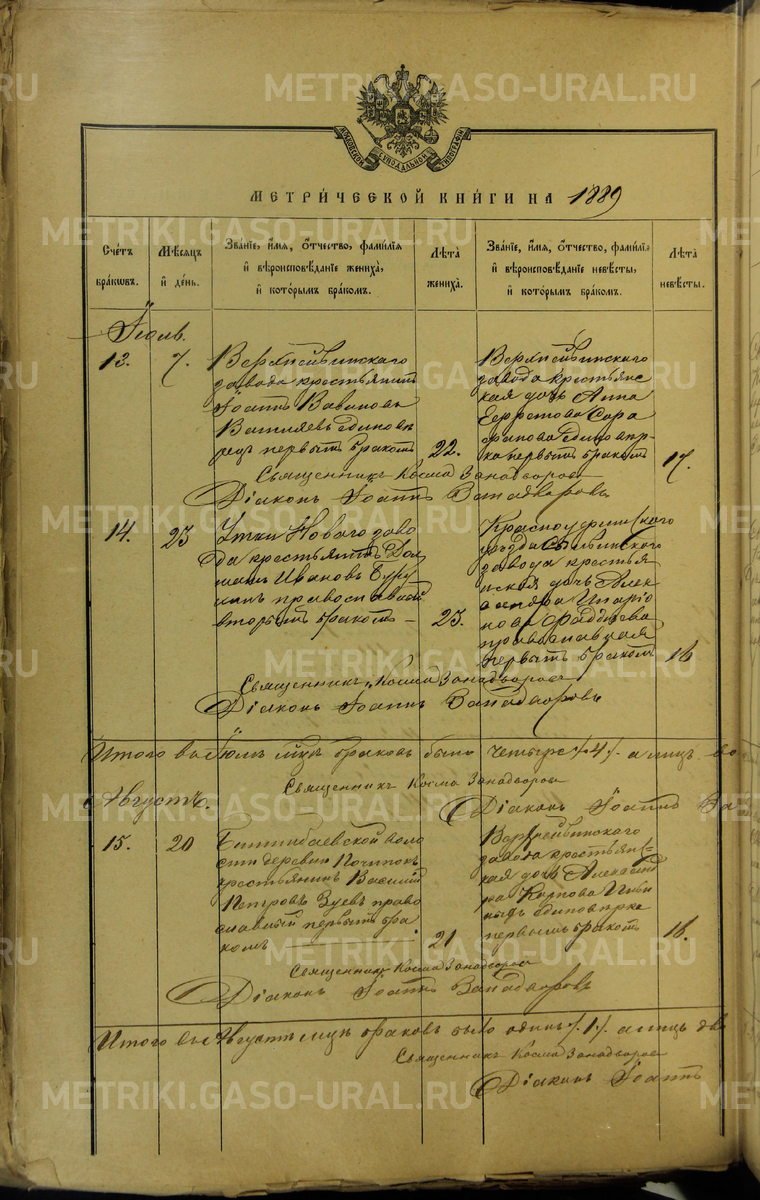 METRIKI.GASO-URAL.RU
МОСКОВСКОЙ СѴНОДАЛЬНОЙ ТИПОГРАФІИ
МЕТРИ́ЧЕСКОЙ КНИ́ГИ НА 1889
Сче́тъ бра́кѡвъ.
Мѣ́сѧцъ и҆ де́нь.
Зва́нїе, и҆́мѧ, ѻ҆́тчество, фами́лїѧ
и҆ вѣроисповѣ́данїе жениха̀,
и҆ кото́рымъ бра́комъ.
Лѣ́та жениха̀.
Зва́нїе, и҆́мѧ, ѻ҆́тчество, фами́лїѧ
и҆ вѣроисповѣ́данїе невѣ́сты,
и҆ кото́рымъ бра́комъ.
Лѣ́та невѣ́сты.
Іюль.
13. 7.
Верхнейвинскаго
завода крестьянинъ
Іоаннъ Вавиловъ
Васильевъ единовѣ
рецъ первымъ бракомъ
22.
Верхнейвинскаго
завода крестьянс
кая дочь Анна
Сара
фанова единовѣр
ка первымъ бракомъ
17.
Священникъ Косма Западворовъ
Діаконъ Іоаннъ Западворовъ
14. 23
Утки Новаго заво
да крестьянинъ
Ивановъ
православный
вторымъ бракомъ
23.
Красноуфимскаго
уѣзда Сылвинскаго
завода крестья
нская дочь Алек
сандра Иларіо
нова
православная
первымъ бракомъ
16
Священникъ Косма Западворовъ
Діаконъ Іоаннъ Западворовъ
Итого въ Іюлѣ мцѣ браковъ было четыре /4/. а лицъ во
Священникъ Косма Западворовъ
Августъ.
Діаконъ Іоаннъ За
15. 20
Билимбаевской воло
сти деревни Починокъ
крестьянинъ Василій
Петровъ Зуевъ право
славный первымъ бра
комъ
21
Верхнейвинскаго
завода крестьянс
кая дочь Александ
ра Карпова
единовѣрка
первымъ бракомъ
16.
Священникъ Косма Западворовъ
Діаконъ Іоаннъ Западворовъ
Итого въ Августѣ мцѣ браковъ было одинъ /1/. а лицъ два
Священникъ Косма Западворовъ
Діаконъ Іоаннъ